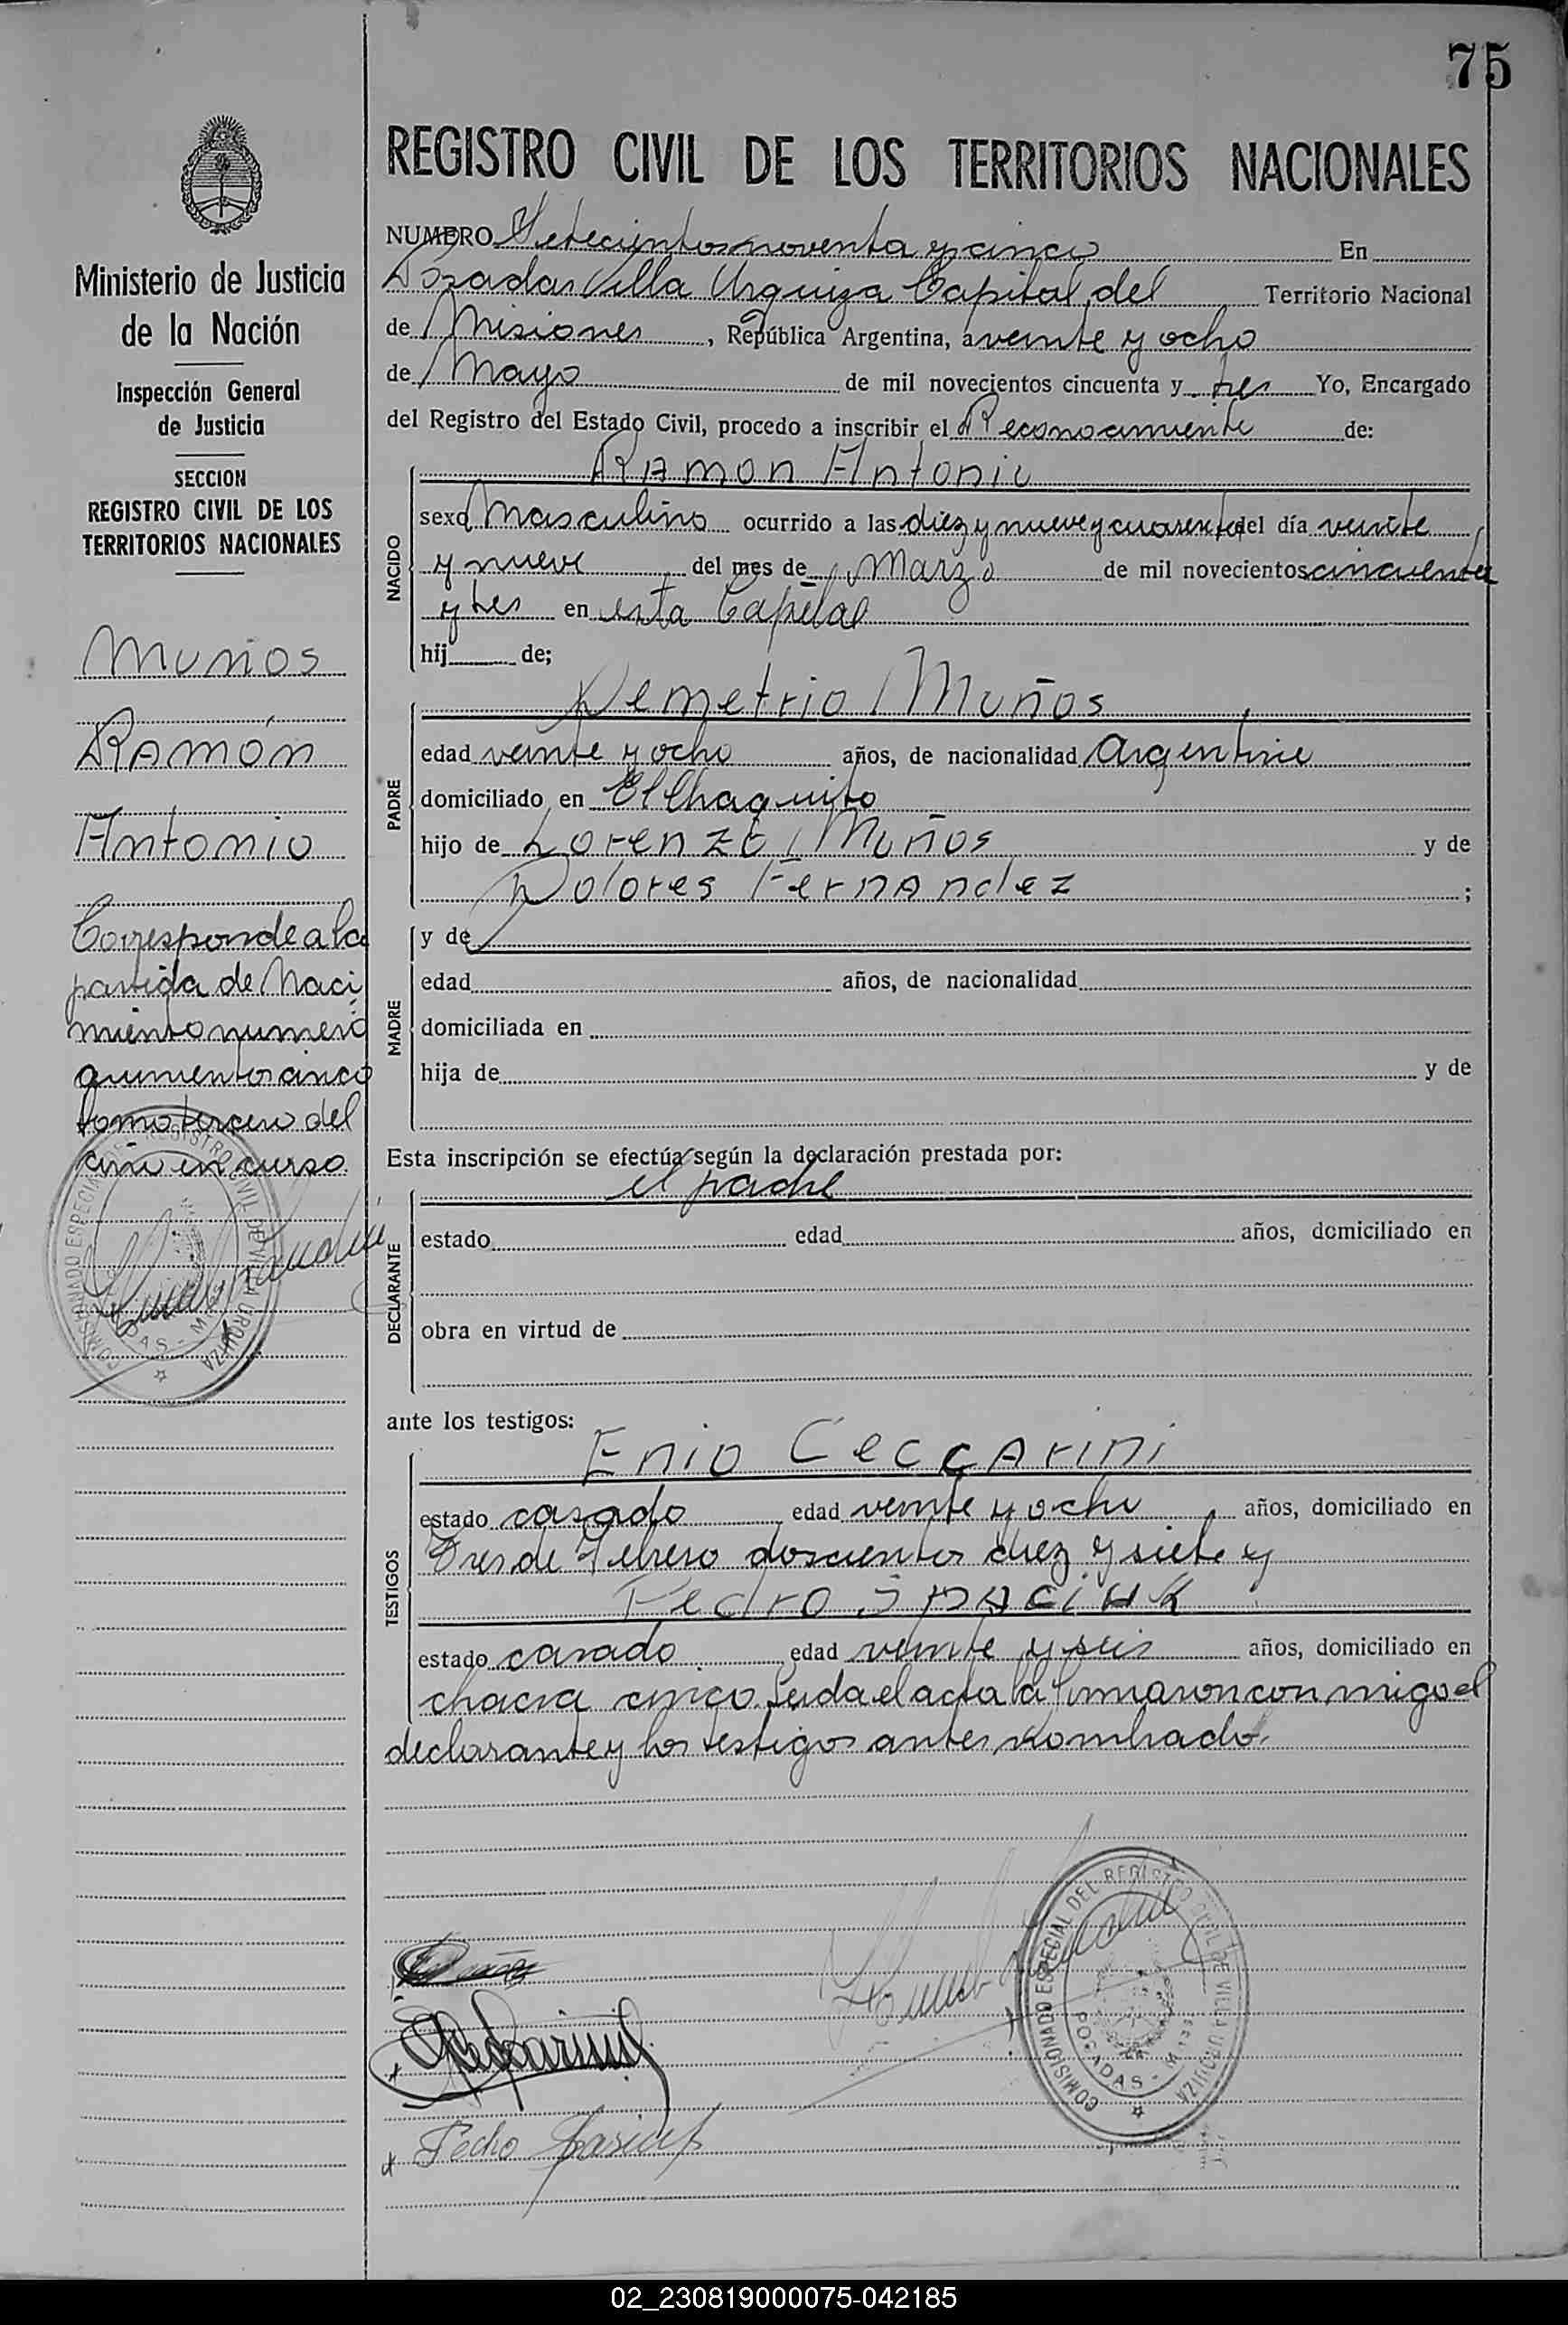 75
Ministerio de Justicia
de la Nación
Inspección General
de Justicia
SECCION
REGISTRO CIVIL DE LOS
TERRITORIOS NACIONALES
Muños
Ramón
Antonio
Corresponde a la
partida de Naci
miento numero
quinientos cinco
tomo tercero del
año en curso
REGISTRO CIVIL DE LOS TERRITORIOS NACIONALES
NUMERO Setecientos noventa y cinco En
Posadas Villa Urquiza Capital del Territorio Nacional
de Misiones, República Argentina, a veinte y ocho
de Mayo de mil novecientos cincuenta y tres Yo, Encargado
del Registro del Estado Civil, procedo a inscribir el Reconocimiento de:
Ramon Antonio
NACIDO
sexo Masculino ocurrido a las diez y nueve y cuarenta del día veinte
y nueve del mes de Marzo de mil novecientos cincuenta
y tres en esta Capital
hij de;
PADRE
Demetrio Muños
edad veinte y ocho años, de nacionalidad Argentino
domiciliado en El Chaquito
hijo de Lorenzo Muños y de
Dolores Fernandez ;
MADRE
y de
edad años, de nacionalidad
domiciliada en
hija de y de
Esta inscripción se efectúa según la declaración prestada por:
el padre
DECLARANTE
estado edad años, domiciliado en
obra en virtud de
ante los testigos:
TESTIGOS
Enio Ceccarini
estado casado edad veinte y ocho años, domiciliado en
Tres de Febrero doscientos diez y siete y
Pedro
estado casado edad veinte y seis años, domiciliado en
chacra cinco. Leida el acta la firmaron con migo el
declarante y los testigos antes nombrado.
COMISIONADO ESPECIAL DEL REGISTRO CIVIL DE VILLA URQUIZA
POSADAS - M
Pedro
02_230819000075-042185